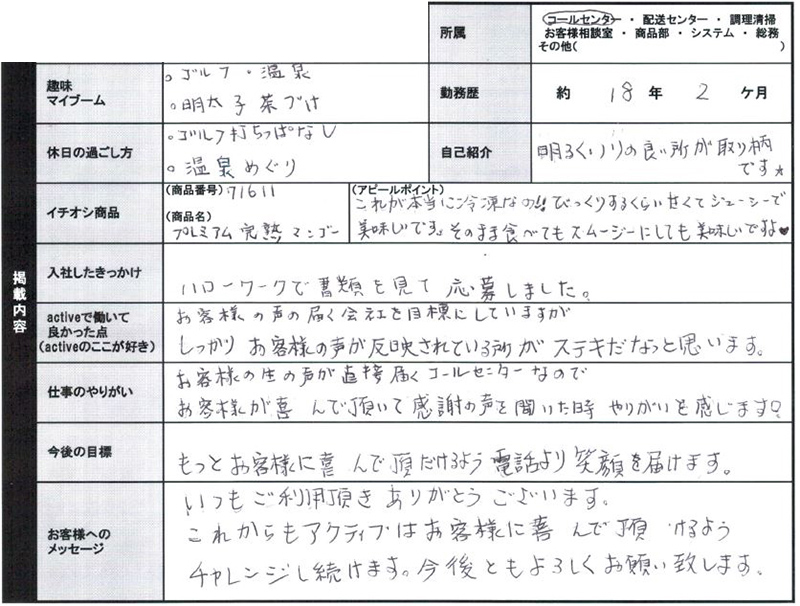 所属
コールセンター ・ 配送センター ・ 調理清掃
お客様相談室 ・ 商品部 ・ システム ・ 総務
その他( )
掲載内容
趣味
マイブーム
。ゴルフ・温泉
。明太子茶づけ
勤務歴
約 18 年 2 ケ月
休日の過ごし方
。ゴルフ打ちっぱなし
。温泉めぐり
自己紹介
明るくノリの良い所が取り柄
です☆
イチオシ商品
(商品番号) 71611
(商品名)
プレミアム完熟マンゴー
(アピールポイント)
これが本当に冷凍なの!!びっくりするくらい甘くてジューシーで
美味しいです。そのまま食べてもスムージーにしても美味しいですよ♥
入社したきっかけ
ハローワークで書類を見て応募しました。
activeで働いて
良かった点
(activeのここが好き)
お客様の声の届く会社を目標にしていますが
しっかりお客様の声が反映されている所がステキだなっと思います。
仕事のやりがい
お客様の生の声が直接届くコールセンターなので
お客様が喜んで頂いて感謝の声を聞いた時やりがいを感じます♡
今後の目標
もっとお客様に喜んで頂だけるよう電話より笑顔を届けます。
お客様への
メッセージ
いつもご利用頂きありがとうございます。
これからもアクティブはお客様に喜んで頂けるよう
チャレンジし続けます。今後ともよろしくお願い致します。